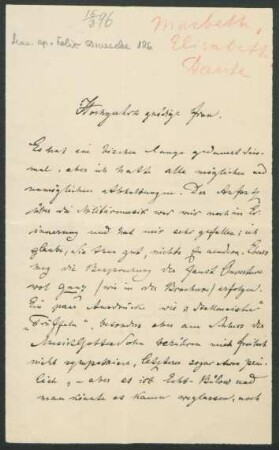 15/3 96
Macbeth,
Elisabeth
Dante
Hochgeehrte gnädige Frau.
Es hat ein bischen lange gedauert dies-
mal, aber ich hatte alle möglichen und
unmöglichen Abhaltungen. Der Aufsatz
über die Militärmusik war mir noch in Er-
innerung und hat mir sehr gefallen; ich
glaube, Sie tun gut, nichts zu ändern. Ebenso
mag die Besprechung der Faust Ouverture
wol ganz (wie in der Broschure) erfolgen.
Ein paar Ausdrücke wie
besonders aber am Schluss der
Musik Gottes Sohn berühren mich freilich
nicht sympathisch, letzterer sogar etwas pein-
lich, – aber es ist Echt-Bülow und
man könnte es kaum weglassen, noch